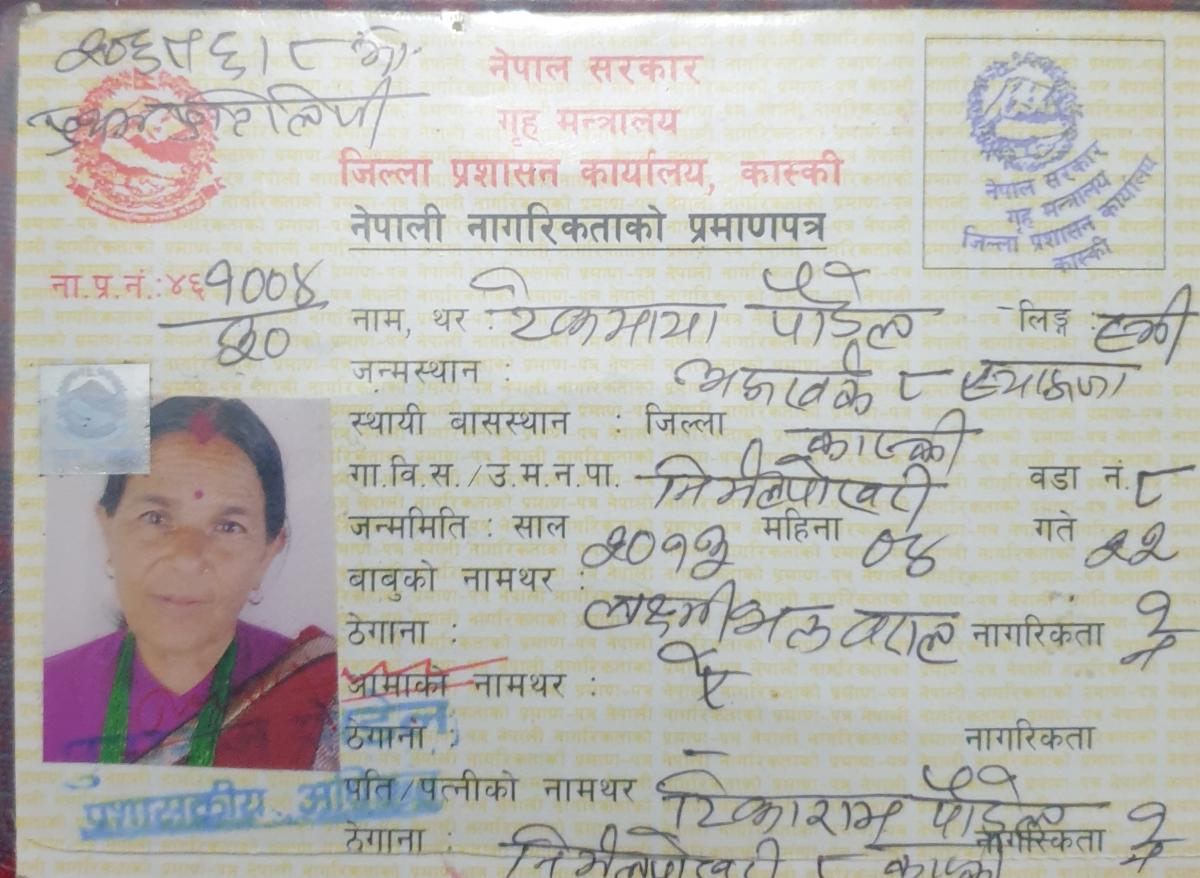 नेपाल सरकार
गृह मन्त्रालय
जिल्ला प्रशासन कार्यालय, कास्की
नेपाली नागरिकताको प्रमाणपत्र
नेपाल सरकार
गृह मन्त्रालय
जिल्ला प्रशासन कार्यालय
कास्की
ना.प्र.नं.: ४६१००४
२०
नाम, थर : टेकमाया पौडेल लिङ्ग स्त्री
जन्मस्थान : ८ स्याङ्जा
स्थायी बासस्थान : जिल्ला कास्की
गा.वि.स./उ.म.न.पा. निर्मलपोखरी वडा नं. ८
जन्ममिति : साल महिना ०४ गते २२
बाबुको नामथर :
ठेगाना : नागरिकता
आमाको नामथर :
ठेगाना : नागरिकता
पति/पत्नीको नामथर टिकाराम पौडेल
ठेगाना : निर्मलपोखरी ८ कास्की नागरिकता
प्रशासकीय